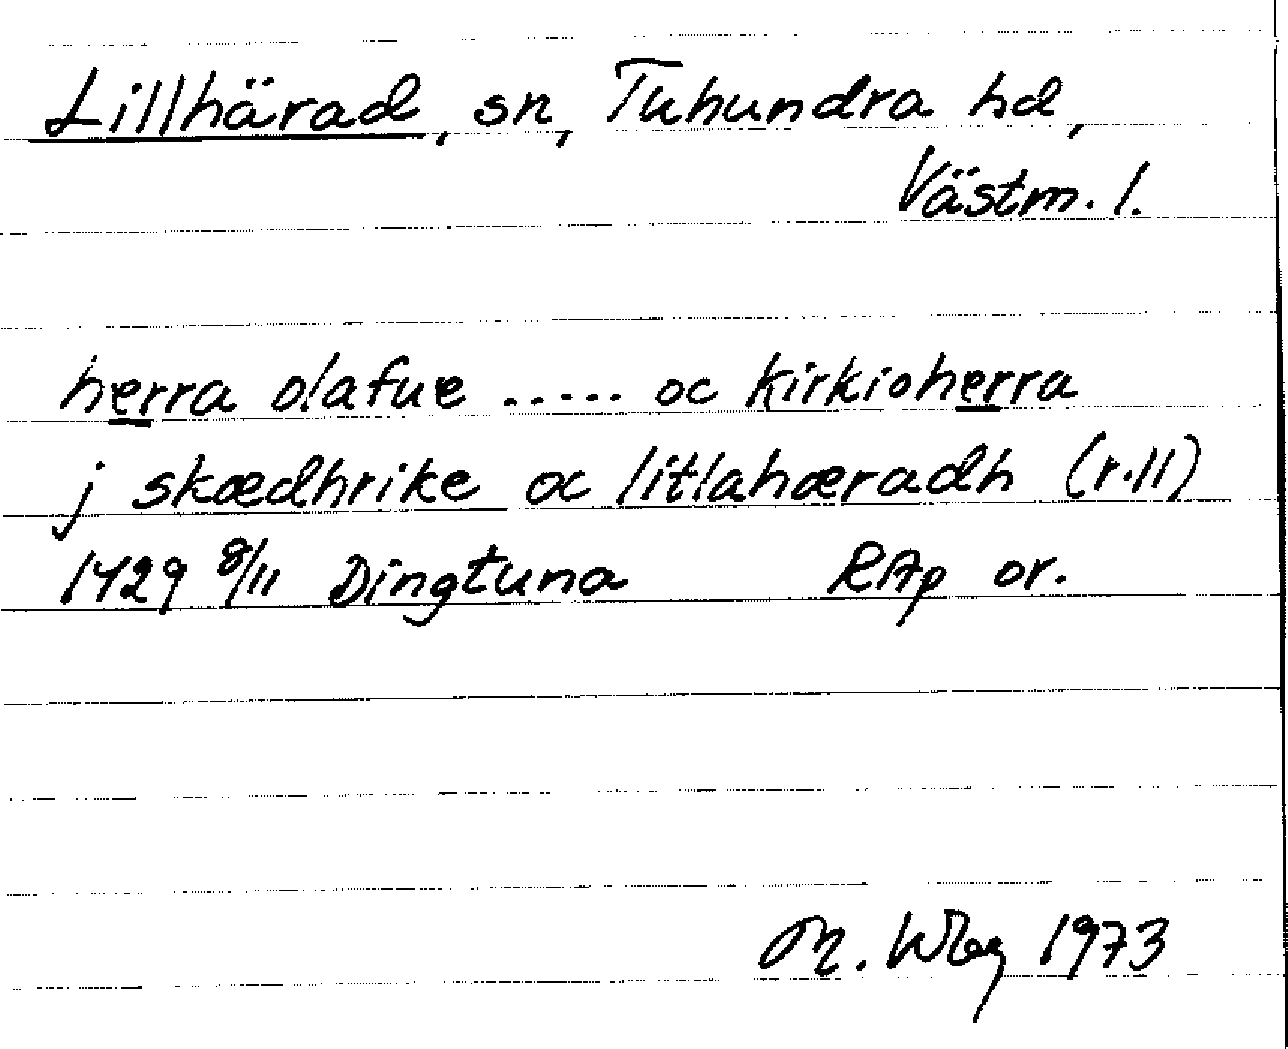 Lillhärad, sn, Tuhundra hd,
Västm. l.
herra olafue ..... oc kirkioherra
j skædhrike oc litlahæradh (r.11)
1429 8/11 Dingtuna RAp or.
M. Wbg 1973